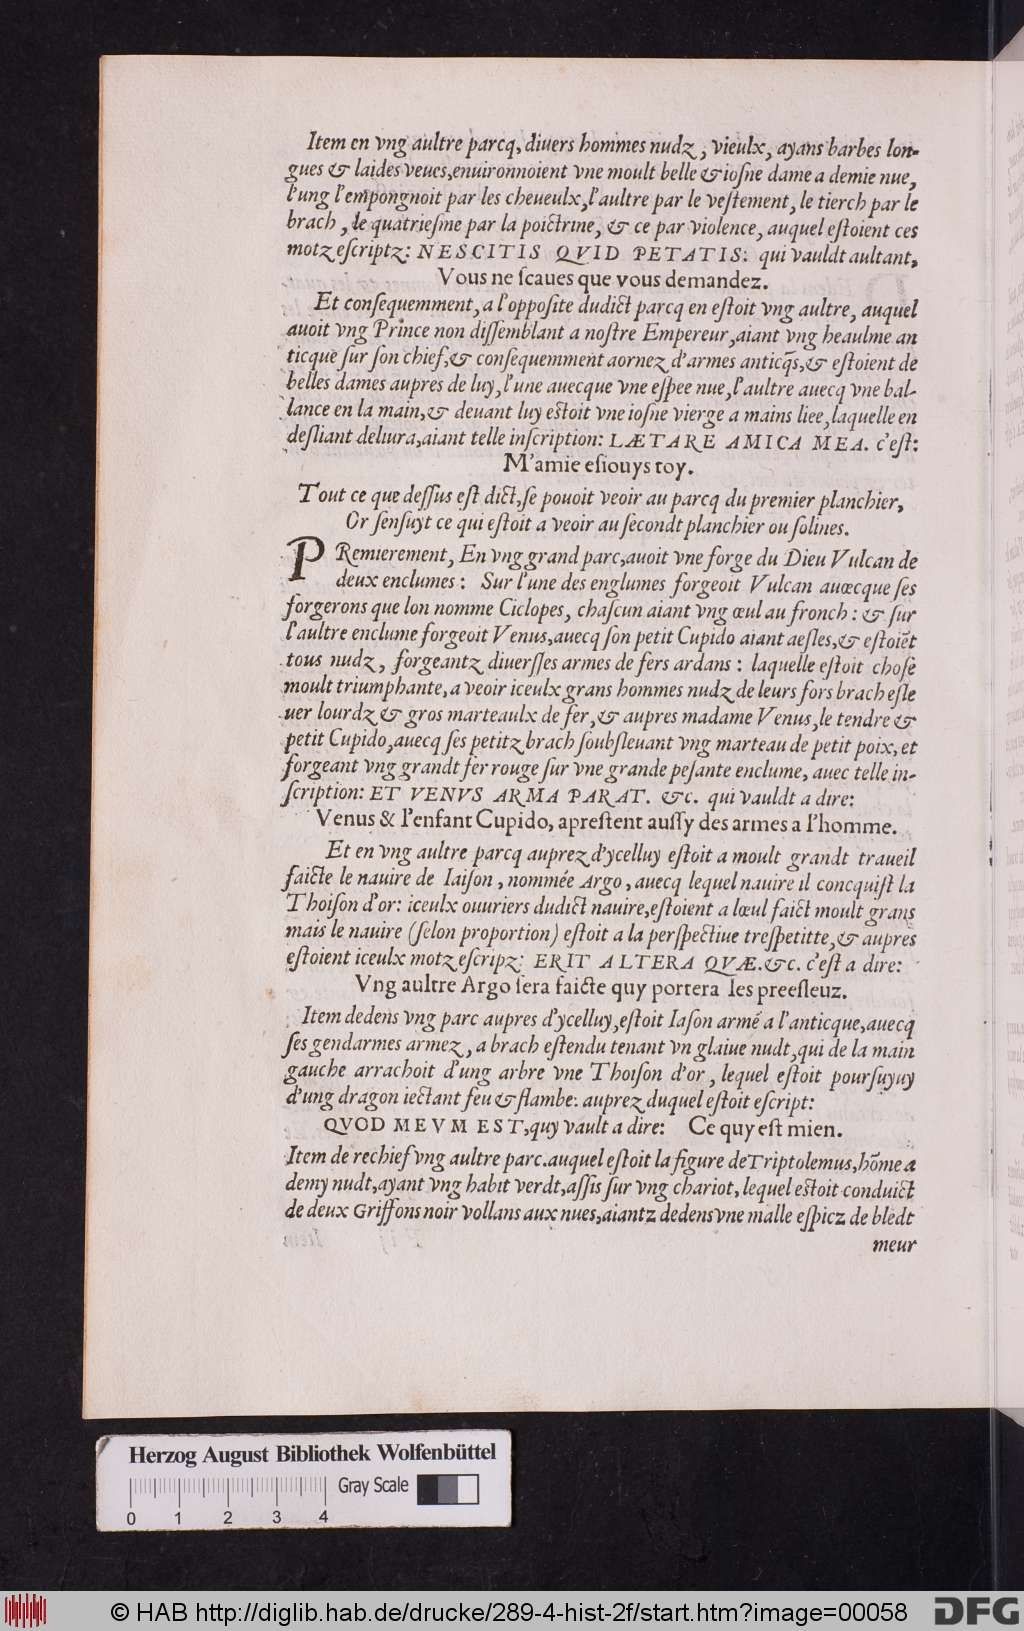 Item en vng aultre parcq, diuers hommes nudz, vieulx, ayans barbes lon-
gues & laides veues, enuironnoient vne moult belle & ioſne dame a demie nue,
l'ung l'empongnoit par les cheueulx, l'aultre par le veſtement, le tierch par le
brach, le quatrieſme par la poictrine, & ce par violence, auquel eſtoient ces
motz eſcriptz: NESCITIS QVID PETATIS: qui vauldt aultant,
Vous ne ſcaues que vous demandez.
Et conſequemment, a l'oppoſite dudict parcq en eſtoit vng aultre, auquel
auoit vng Prince non diſſemblant a noſtre Empereur, aiant vng heaulme an
ticque ſur ſon chief, & conſequemment aornez d'armes anticq̃s, & eſtoient de
belles dames aupres de luy, l'une auecque vne eſpee nue, l'aultre auecq vne bal-
lance en la main, & deuant luy eſtoit vne ioſne vierge a mains liee, laquelle en
deſliant deliura, aiant telle inſcription: LÆTARE AMICA MEA. c'eſt:
M'amie eſiouys toy.
Tout ce que deſſus eſt dict, ſe pouoit veoir au parcq du premier planchier,
Or ſenſuyt ce qui eſtoit a veoir au ſecondt planchier ou ſolines.
PRemierement, En vng grand parc, auoit vne forge du Dieu Vulcan de
deux enclumes: Sur l'une des englumes forgeoit Vulcan auœcque ſes
forgerons que lon nomme Ciclopes, chaſcun aiant vng œul au fronch: & ſur
l'aultre enclume forgeoit Venus, auecq ſon petit Cupido aiant aeſles, & eſtoiẽt
tous nudz, forgeantz diuerſſes armes de fers ardans: laquelle eſtoit choſe
moult triumphante, a veoir iceulx grans hommes nudz de leurs fors brach eſle
uer lourdz & gros marteaulx de fer, & aupres madame Venus, le tendre &
petit Cupido, auecq ſes petitz brach ſoubſleuant vng marteau de petit poix, et
forgeant vng grandt fer rouge ſur vne grande peſante enclume, auec telle in-
ſcription: ET VENVS ARMA PARAT. &c. qui vauldt a dire:
Venus & l'enfant Cupido, apreſtent auſſy des armes a l'homme.
Et en vng aultre parcq auprez d'ycelluy eſtoit a moult grandt traueil
faicte le nauire de Iaiſon, nommée Argo, auecq lequel nauire il concquiſt la
Thoiſon d'or: iceulx ouuriers dudict nauire, eſtoient a lœul faict moult grans
mais le nauire (ſelon proportion) eſtoit a la perſpectiue treſpetitte, & aupres
eſtoient iceulx motz eſcripz: ERIT ALTERA QVÆ. &c. c'eſt a dire:
Vng aultre Argo ſera faicte quy portera les preeſleuz.
Item dedens vng parc aupres d'ycelluy, eſtoit Iaſon armé a l'anticque, auecq
ſes gendarmes armez, a brach eſtendu tenant vn glaiue nudt, qui de la main
gauche arrachoit d'ung arbre vne Thoiſon d'or, lequel eſtoit pourſuyuy
d'ung dragon iectant feu & flambe: auprez duquel eſtoit eſcript:
QVOD MEVM EST, quy vault a dire: Ce quy eſt mien.
Item de rechief vng aultre parc. auquel eſtoit la figure de Triptolemus, hõme a
demy nudt, ayant vng habit verdt, aſſis ſur vng chariot, lequel eſtoit conduict
de deux Griffons noir vollans aux nues, aiantz dedens vne malle eſpicz de bledt
meur
Herzog August Bibliothek Wolfenbüttel
Gray Scale
0 1 2 3 4
© HAB http://diglib.hab.de/drucke/289-4-hist-2f/start.htm?image=00058
DFG